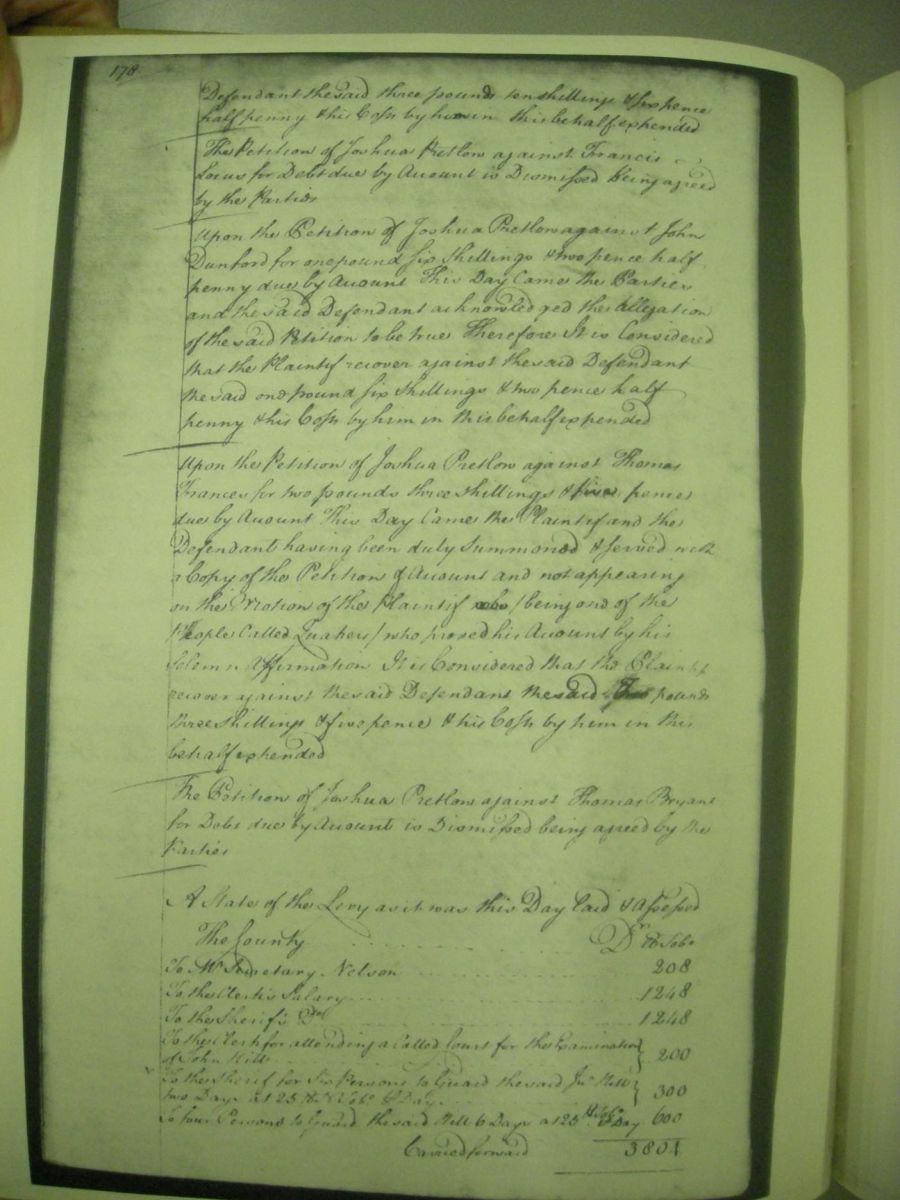 178
Defendant the said three pounds ten shillings & six pence
half penny & his Costs by him in this behalf expended
The Petition of Joshua Pretlow against Francis
Locus for Debt due by Account is Dismissed being agreed
by the Parties
Upon the Petition of Joshua Pretlow against John
Dunford for one pound six Shillings & two pence half
penny due by Account This Day Came the Parties
and the said Defendant acknowledged the Allegation
of the said Petition to be true Therefore It is Considered
that the Plaintif recover against the said Defendant
the said one pound six Shillings & two pence half
penny & his Costs by him in this behalf expended
Upon the Petition of Joshua Pretlow against Thomas
Frances for two pounds three shillings & five pence
due by Account This Day Came the Plaintif and the
Defendant having been duly Summoned & served with
a Copy of the Petition & Account and not appearing
on the Motion of the Plaintif (being one of the
People Called Quakers) who proved his Account by his
Solemn Affirmation It is Considered that the Plaintif
recover against the said Defendant the said Two pounds
three Shillings & five pence & his Costs by him in this
behalf expended
The Petition of Joshua Pretlow against Thomas Bryant
for Debt due by Account is Dismissed being agreed by the
Parties
A State of the Levy as it was this Day Laid & Assessed
The County Dr lb Tobo
To Mr Secretary Nelson 208
To the Clerks Salary 1248
To the Sherif's Do 1248
To the Clerk for attending a Called Court for the Examination
of John Hill 200
To the Sherif for Six Persons to Guard the said Jno Hill
two Days at 25 lb Tobo P Day 300
To four Persons to Guard the said Hill 6 Days a 25 lb Tobo P Day 600
Carried forward 3804